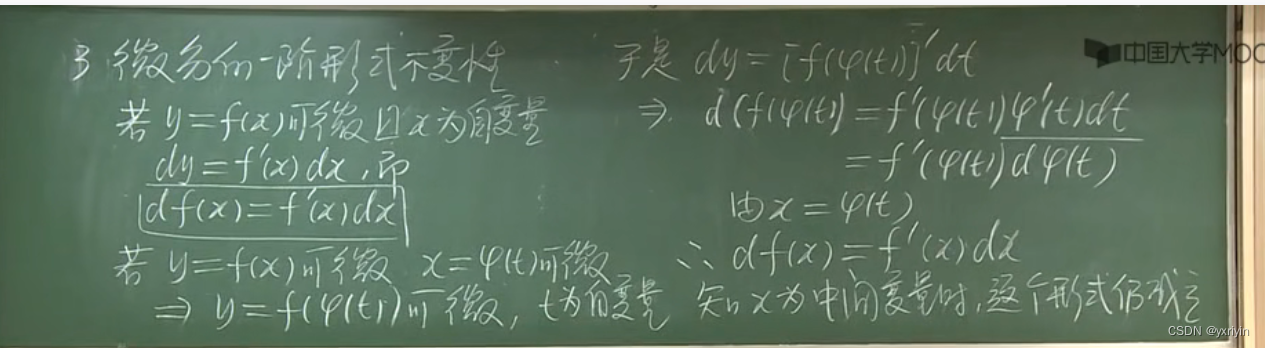 3 微分的一阶形式不变性
若 y=f(x)可微且x为自变量
dy=f'(x)dx,即
df(x)=f'(x)dx
若 y=f(x)可微 x=φ(t)可微
⇒ y=f(φ(t))可微,t为自变量
于是 dy=[f(φ(t))]'dt
⇒ d(f(φ(t))=f'(φ(t))φ'(t)dt
=f'(φ(t))dφ(t)
由x=φ(t)
∴ df(x)=f'(x)dx
知x为中间变量时,这个形式仍成立
中国大学MOO
CSDN @yxriyin